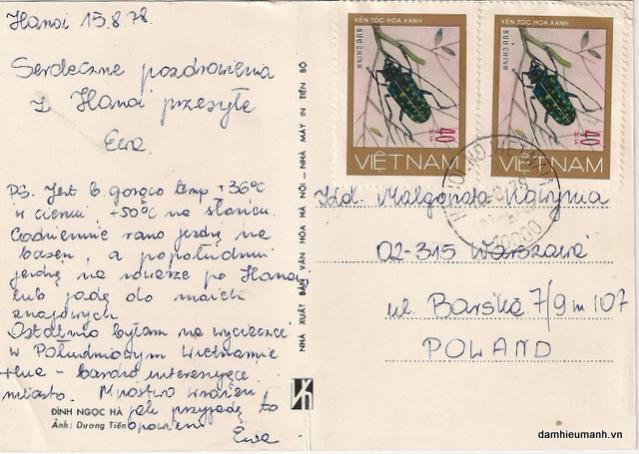 Hanoi 15.8.78.
Serdeczne pozdrowienia
z Hanoi przesyła
Ewa.
PS. Jest b. gorąco temp +36°C
w cieniu, +50°C na słońcu.
Codziennie rano jeżdżę na
basen, a popołudniu
jeżdżę na rowerze po Hanoi
lub jadę do moich
znajomych
Ostatnio byłam na wycieczce
w Południowym Wietnamie
Hue - bardzo interesujące
miasto. Mnóstwo wrażeń,
jak przyjadę to
opowiem
Ewa
ĐÌNH NGỌC HÀ
Ảnh: Dương Tiến
NHÀ XUẤT BẢN VĂN HÓA HÀ NỘI — NHÀ MÁY IN TIẾN BỘ
XÉN TÓC HOA XANH
BƯU CHÍNH
40
XU
VIỆTNAM
XÉN TÓC HOA XANH
BƯU CHÍNH
40
XU
VIỆTNAM
10000
Małgorzata
02-315 Warszawa
ul. Barska 7/9 m 107
POLAND
damhieumanh.vn